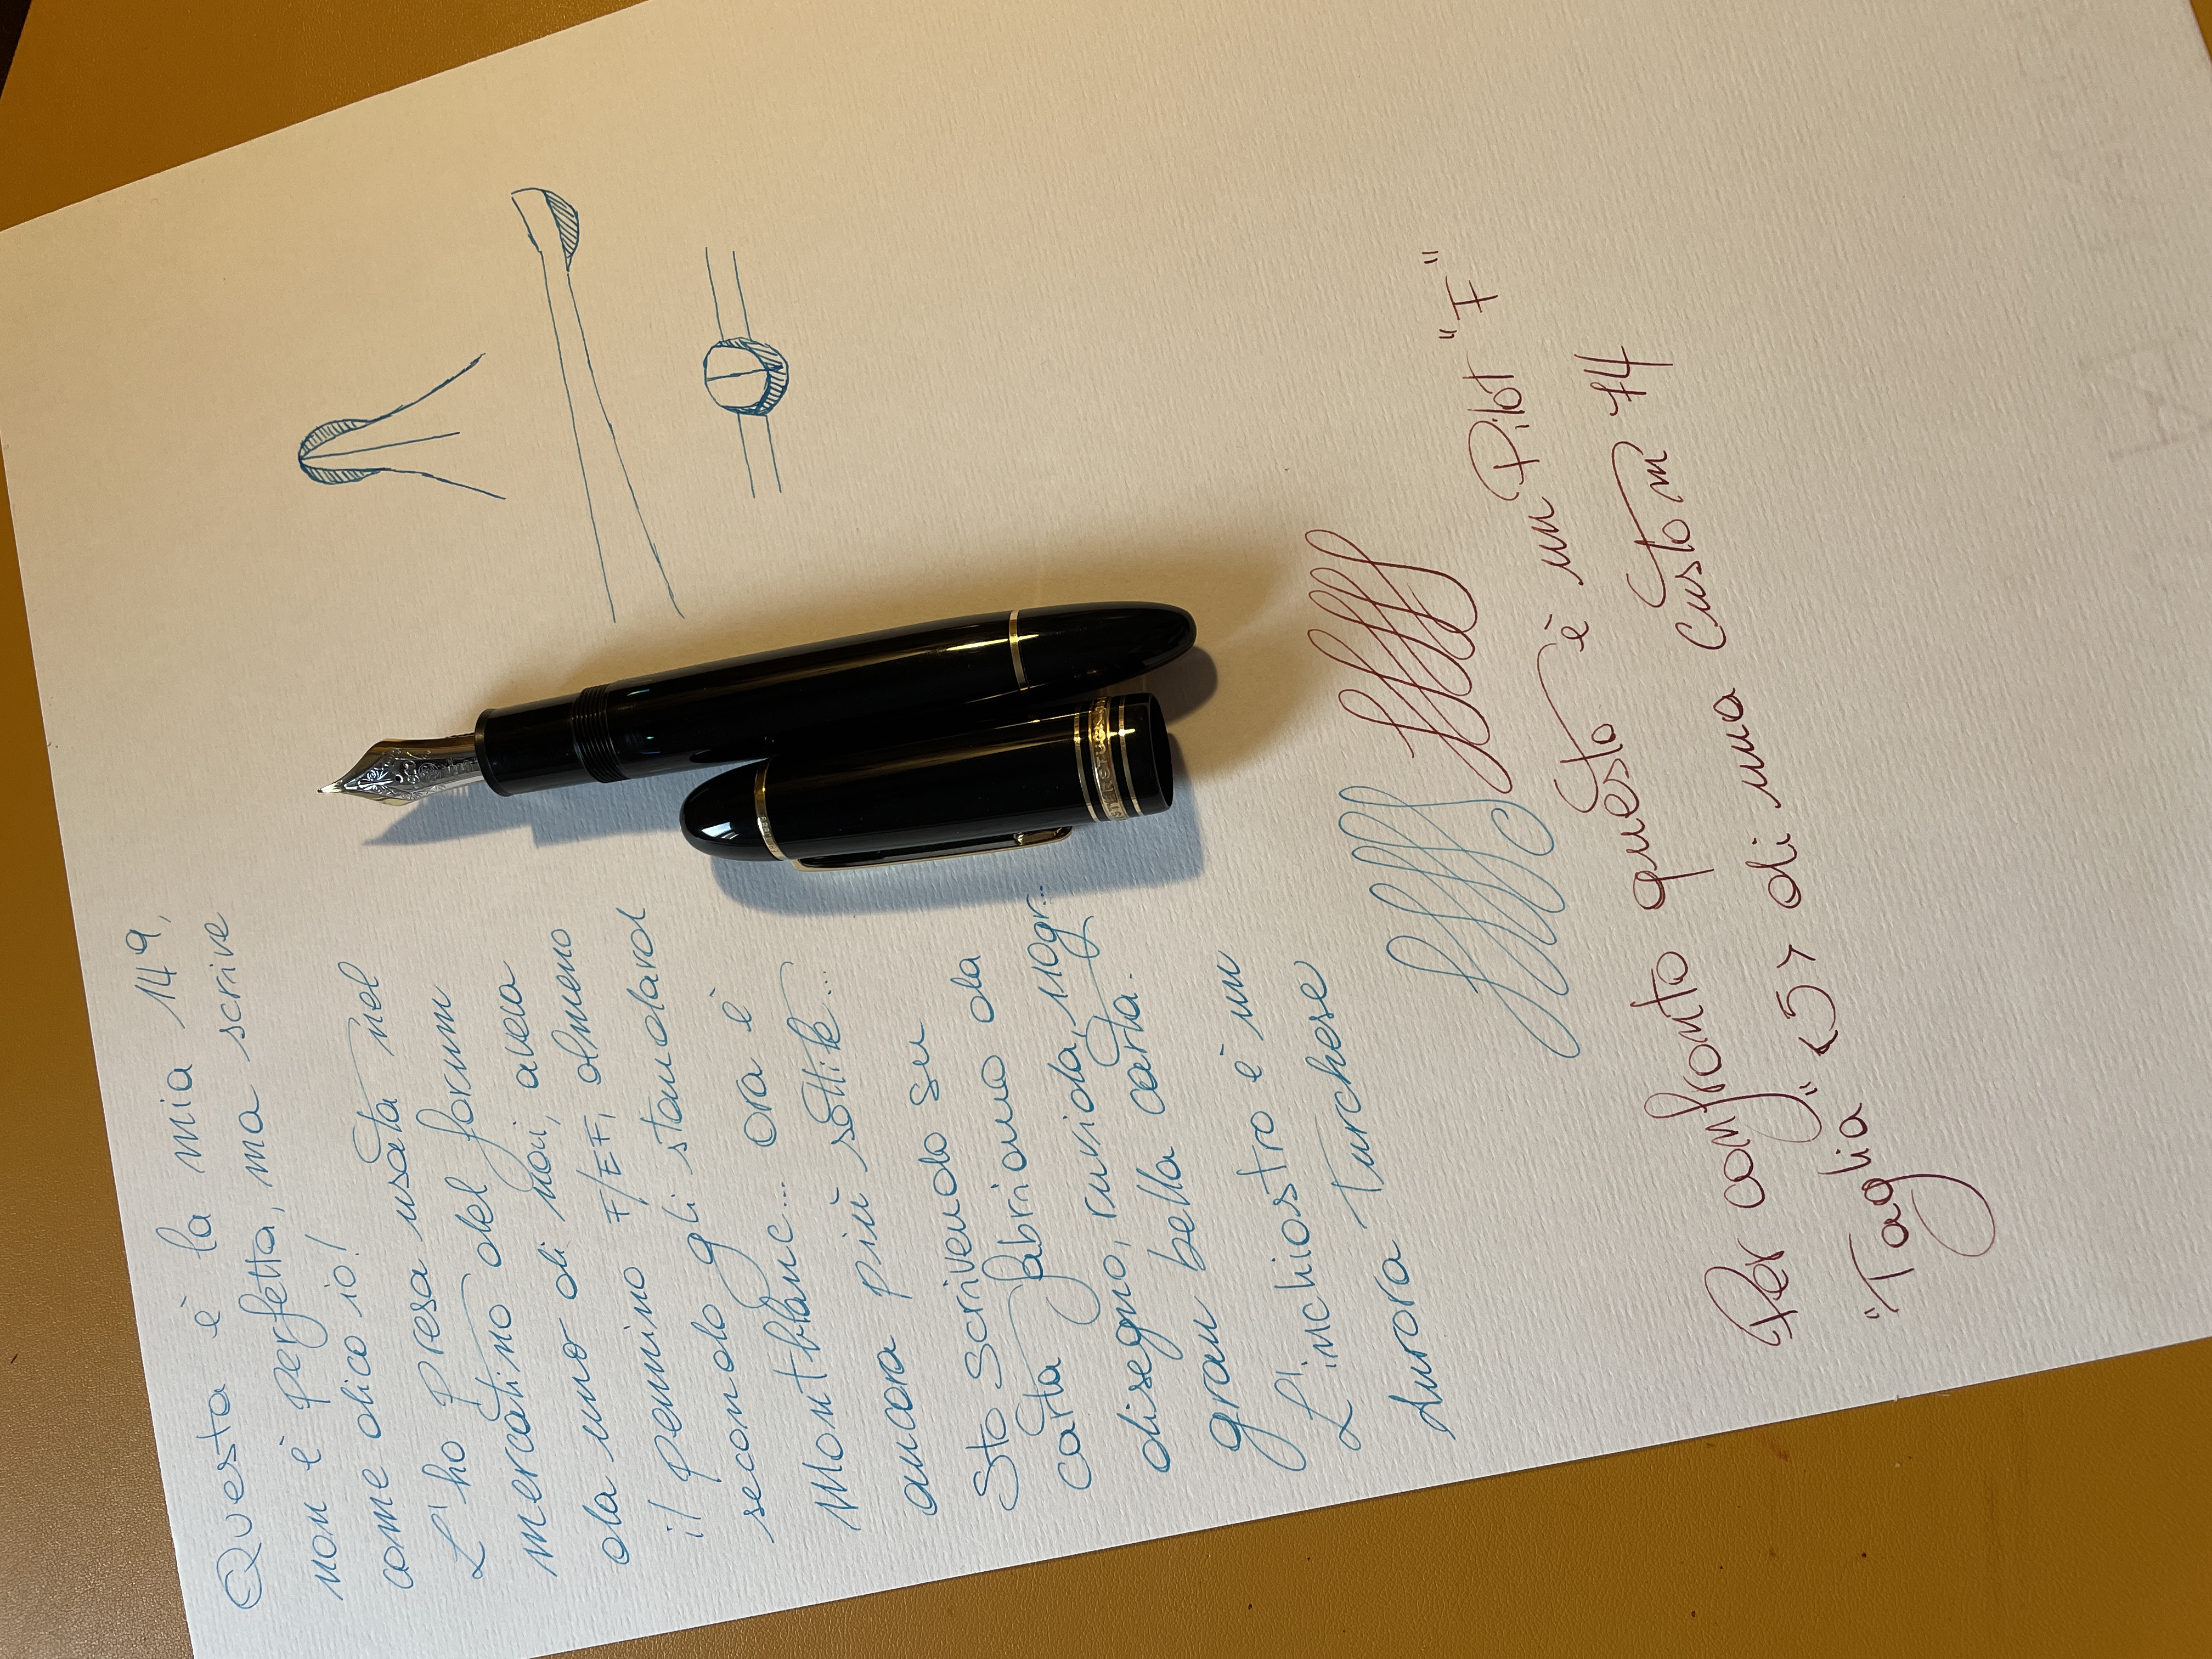 Questa è la mia 149,
non è perfetta, ma scrive
come dico io!
L'ho presa usata nel
mercatino del forum
da uno di noi, aveva
il pennino F/EF, almeno
secondo gli standard
Montblanc... ora è
ancora più sottile...
Sto scrivendo su
carta Fabriano da
disegno, ruvida, 110gr...
gran bella carta.
L'inchiostro è un
Aurora Turchese
Per confronto questo è un Pilot "F"
"Taglia" <5> di una Custom 74